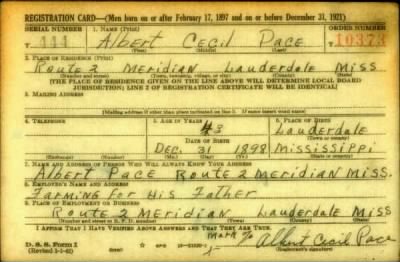 REGISTRATION CARD—(Men born on or after February 17, 1897 and on or before December 31, 1921)
SERIAL NUMBER 1. NAME (Print) ORDER NUMBER
T 444 Albert Cecil Pace 10373
(First) (Middle) (Last)
2. PLACE OF RESIDENCE (Print)
Route 2 Meridian Lauderdale Miss
(Number and street) (Town, township, village, or city) (County) (State)
[THE PLACE OF RESIDENCE GIVEN ON THE LINE ABOVE WILL DETERMINE LOCAL BOARD
JURISDICTION; LINE 2 OF REGISTRATION CERTIFICATE WILL BE IDENTICAL]
3. MAILING ADDRESS
[Mailing address if other than place indicated on line 2. If same insert word same]
4. TELEPHONE 5. AGE IN YEARS 6. PLACE OF BIRTH
43 Lauderdale
DATE OF BIRTH (Town or county)
Dec. 31 1898 Mississippi
(Exchange) (Number) (Mo.) (Day) (Yr.) (State or country)
7. NAME AND ADDRESS OF PERSON WHO WILL ALWAYS KNOW YOUR ADDRESS
Albert Pace Route 2 Meridian Miss.
8. EMPLOYER'S NAME AND ADDRESS
Farming for His Father
9. PLACE OF EMPLOYMENT OR BUSINESS
Route 2 Meridian Lauderdale Miss
(Number and street or R. F. D. number) (Town) (County) (State)
I AFFIRM THAT I HAVE VERIFIED ABOVE ANSWERS AND THAT THEY ARE TRUE.
D. S. S. Form 1
(Revised 2-1-42)
Albert Cecil Pace
(Registrant's signature)